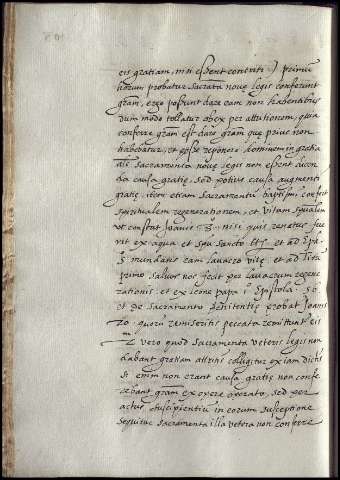 eis gratiam, nisi essent contriti :) primū
horum probatur sacramta nouę legis conferunt
gram, ergo possunt dare eam non habentibus
dum modo tollatur obex per attritionem, quia
conferre gram est dare gram quę prius non
habebatur, et posse reponere hominem in gratia
aliàs sacramenta nouę legis non essent dicenda
causa gratię, sed potius causa augmenti
gratię. item etiam sacramentū baptismi confert
spiritualem regenerationem, et vitam spūalem
vt constat Joanis .3. nisi quis renatus fue
rit ex aqua et spu sancto etc. et ad Ephe
5 mundans eam lauacro vitę et ad Titū
primo saluos nos fecit per lauacrum regene
rationis. et ex leone papa Epistola
et de sacramento penitentię probat Joanis
20. quorū remiseritis peccata remittuntur eis
2 vero quod sacramenta veteris legis non
dabant gratiam attritis colligitur ex iam dictis
si enim non erant causa gratię non confe
rebant gram ex opere operato, sed per
actus suscipientiū in eorum susceptione
sequitur sacramenta illa vetera non conferre